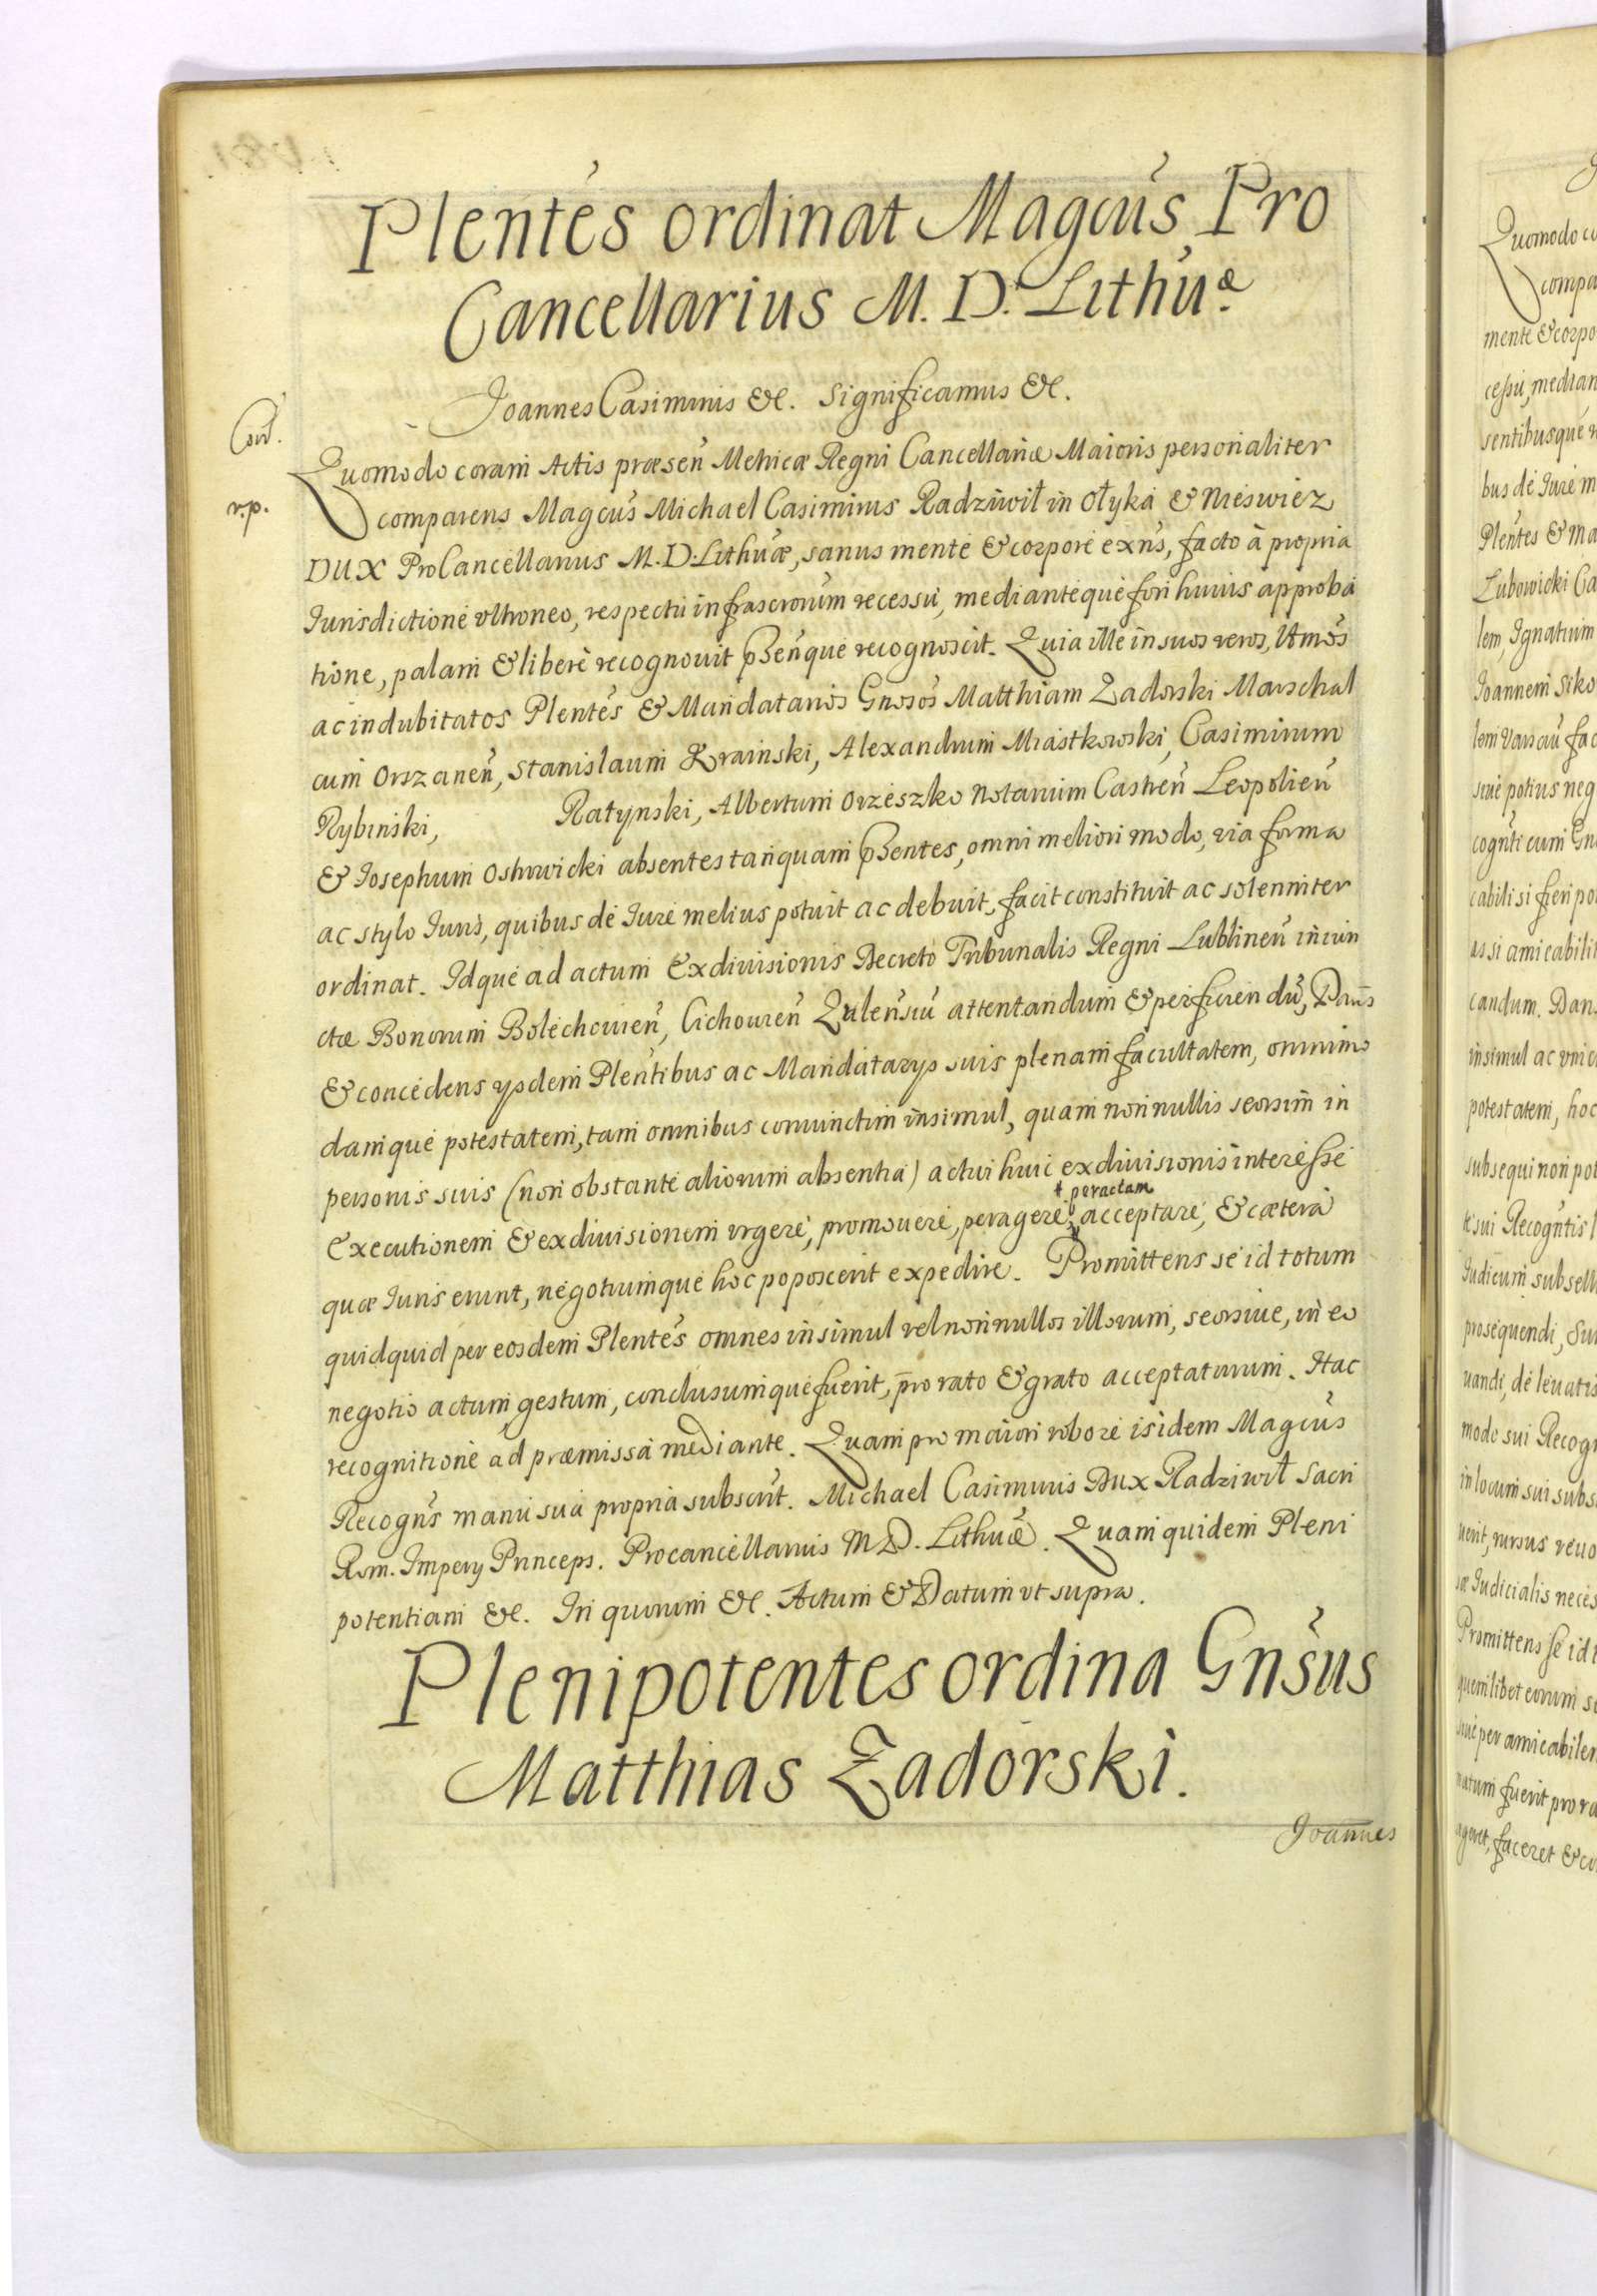 Plentes ordinat Magcus Pro
Cancellarius M. D. Lithuæ
Joannes Casimirus &c. Significamus &c.
Con.
Quomodo coram Actis præsen Metricæ Regni Cancellariæ Maioris personaliter
r.p.
comparens Magcus Michael Casimirus Radziwił in Ołyka & Nieswiez
DUX ProCancellarius M.D. Lithuæ, sanus mente & corpore exns, facto à propria
Iurisdictione ultroneo, respectu infrascrorum recessu, medianteque fori huius approba
tione, palam & liberè recognouit pñsenque recognoscit. Quia ille in suos veros, Utmos
ac indubitatos Plentes & Mandatarios Gnosos Matthiam Zadorski Marschal
cum Orszanen, Stanislaum Krainski, Alexandrum Miastkowski, Casimirum
Rybinski, Ratynski, Albertum Orzeszko Notarium Castren Leopolien
& Josephum Ostrowicki absentes tanquam pñsentes, omni meliori modo, via forma
ac stylo Iuris, quibus de Iure melius potuit ac debuit, facit constituit ac solenniter
ordinat. Idque ad actum Exdiuisionis Decreto Tribunalis Regni Lublinen iniun
ctæ Bonorum Bolechouien, Cichouren Zulensiu attentandum & perfuren du, Dans
& concedens ysdem Plentibus ac Mandatarys suis plenam facultatem, omnimo
damque potestatem, tam omnibus coniunctim insimul, quam nonnullis seorsim in
personis suis (non obstante aliorum absentia) actui huic exdiuisionis interesse
+ peractam
Executionem & exdiuisionem urgere, promouere, peragere, acceptare, & cætera
quæ Iuris erunt, negotiumque hoc poposcerit expedire. Promittens se id totum
quidquid per eosdem Plentes omnes insimul vel nonnullos illorum, seorsiue, in eo
negotio actum gestum, conclusumque fuerit, pro rato & grato acceptaturum. Hac
recognitione ad præmissa mediante. Quam pro maiori robore isidem Magcus
Recogns manu sua propria subscrit. Michael Casimirus Dux Radziwił Sacri
Rom. Impery Princeps. Procancellarius M D. Lithuæ. Quam quidem Pleni
potentiam &c. In quorum &c. Actum & Datum ut supra.
Plenipotentes ordina Gnsus
Matthias Zadorski.
Joannes
Quomodo
mente & corpo
cessu, median
sentibusque
bus de Iure m
Plentes & Ma
Lubowicki Ca
lem, Ignatium
Joannem Siko
siue potius neg
cognti cum Gn
cabili si fieri po
as si amicabilit
candum. Dan
insimul ac unic
potestatem, hoc
subsequi non pot
te sui Recogntis
Iudicum subsell
prosequendi, Su
uandi, de leuatis
modo sui Recog
in locum sui subs
uerit, rursus reuo
sæ Iudicialis neces
Promittens se id
quemlibet eorum
siue per amicabilem
natum fuerit pro ra
ageret, faceret & co